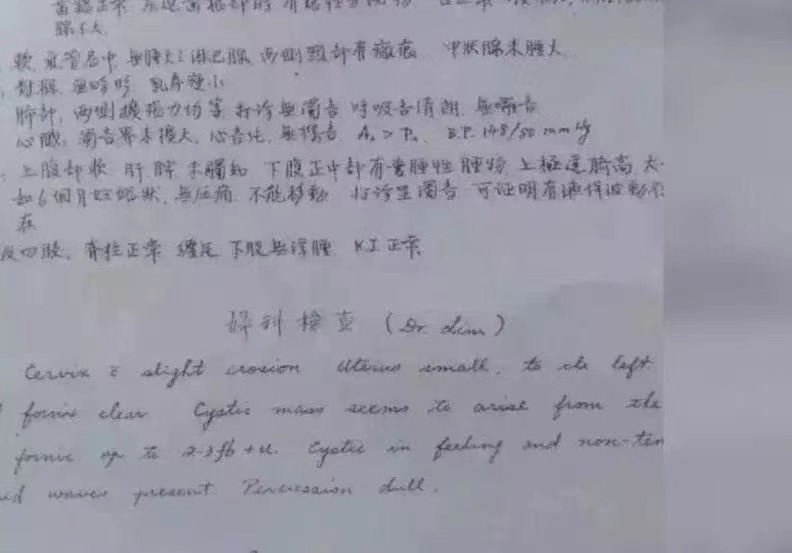 腺不大
軟 氣管居中 無腫大之淋巴腺 兩側頸部有瘢痕 甲狀腺未腫大
對稱 無哮吟 乳房矮小
肺部, 兩側擴張力均等 打診無濁音 呼吸音清朗 無囉音
心臟, 濁音界未擴大, 心音純, 無雜音 A₂ > P₂ B.P. 148/80 mmHg
上腹部軟 肝脾未觸知 下腹正中部有囊腫性腫物 上極達臍高 大
如6個月妊娠狀 無压痛 不能移動 打診呈濁音 可证明有液体波動
在
及四肢, 脊柱正常 纏足 下肢無浮腫 KJ 正常
婦科檢查 (Dr. Lim)
Cervix c̄ slight erosion Uterus small, to the left
fornix clear Cystic mass seems to arise from the
fornix up to 2-3 fb + u. Cystic in feeling and non-ten
waves present Percussion dull.